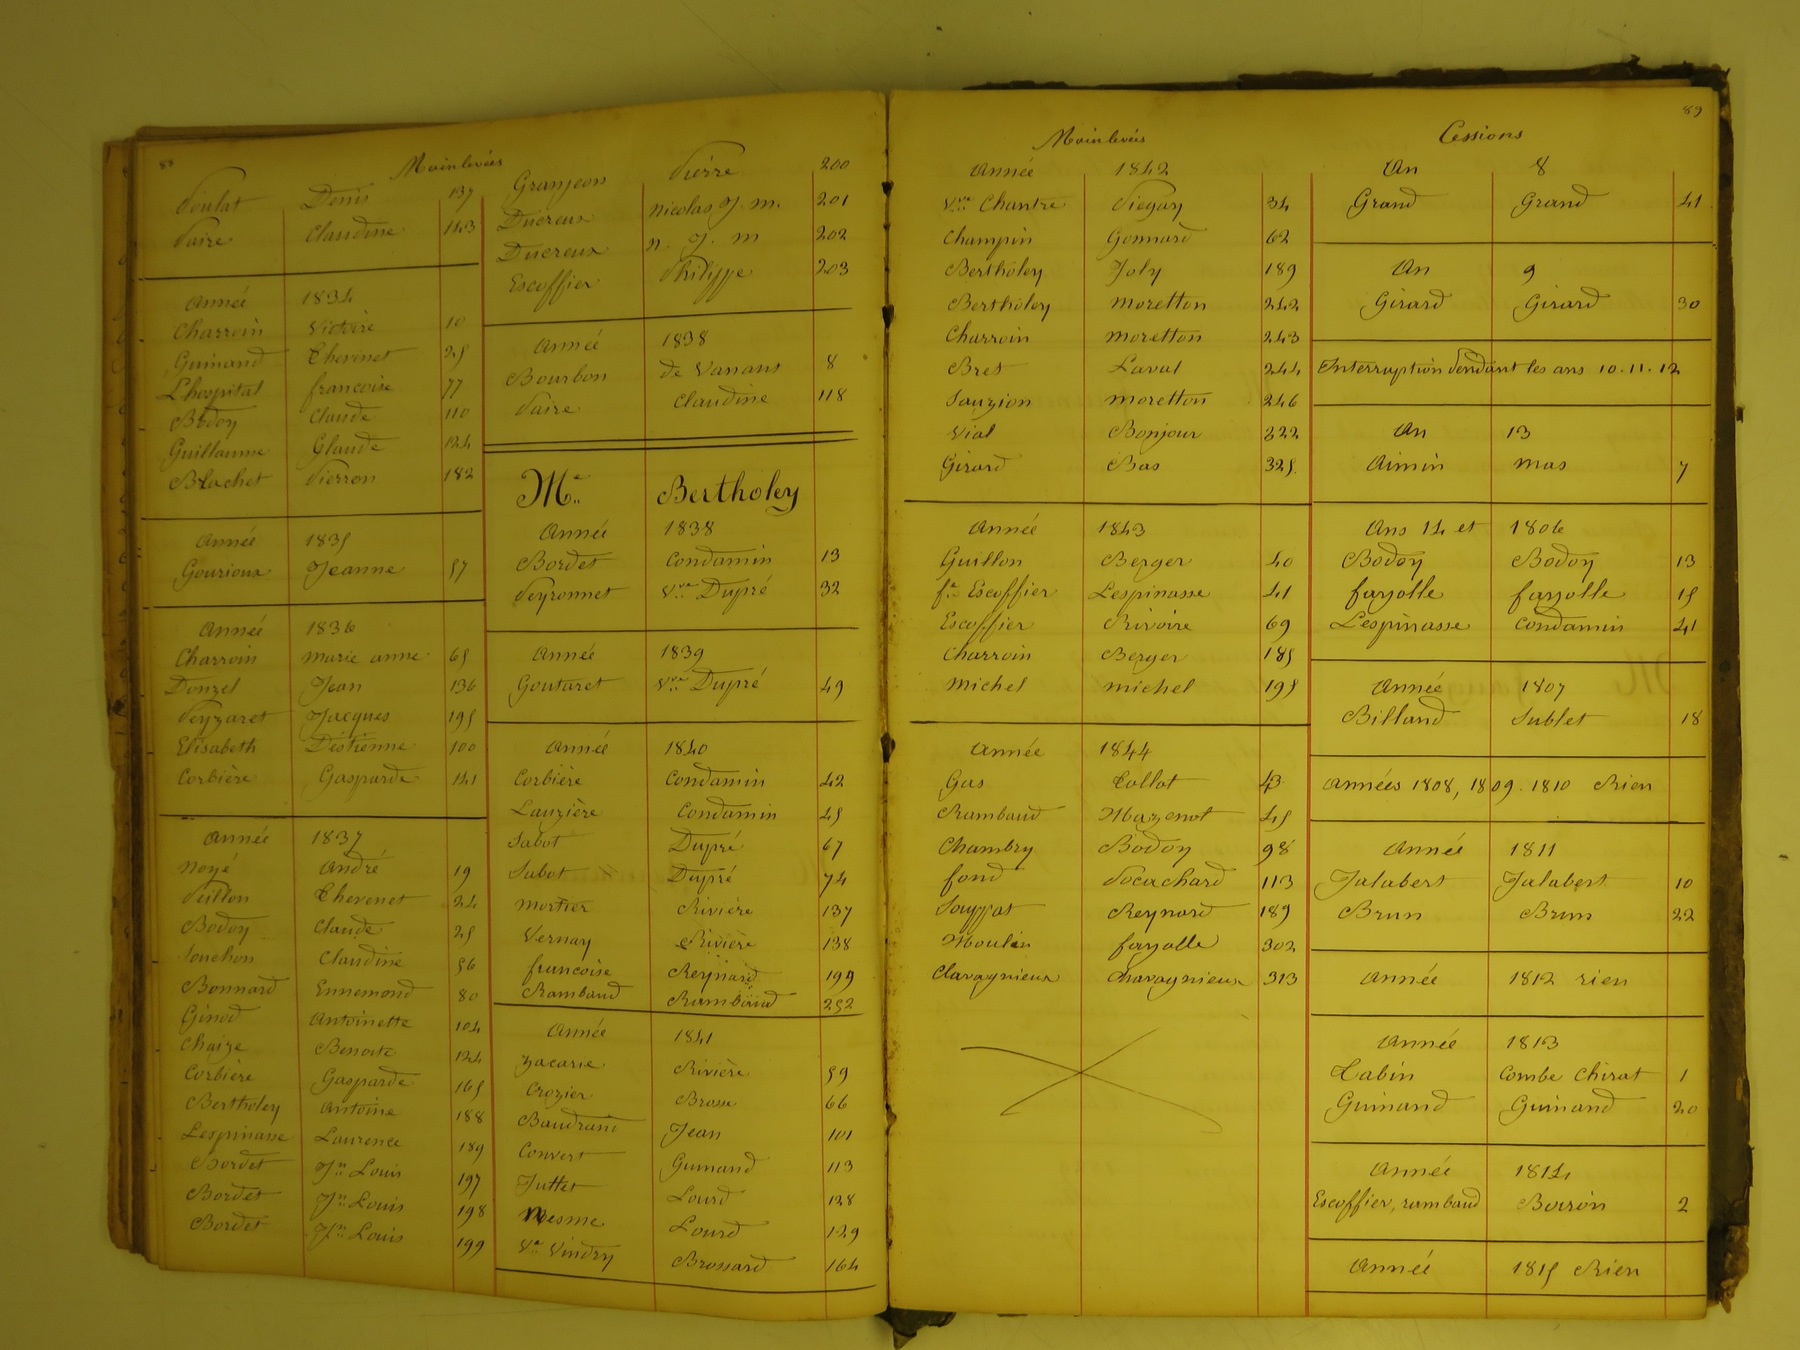 Mainlevées
Poulat Denis 137
Paire Claudine 143
Année 1834
Charroin Victoire 10
Guinand Thevenet 25
Lhospital françoise 77
Bodoy Claude 110
Guillaume Glaude 124
Blachet Pierron 182
Année 1835
Gourioux Jeanne 57
Année 1836
Charroin marie anne 65
Donzel Jean 136
Peyzaret Jacques 195
Elisabeth Destienne 100
Corbière Gasparde 141
Année 1837
noyé André 19
Peillon Thevenet 24
Bodoy Claude 25
Souchon Claudine 56
Bonnard Ennemond 80
Ginod Antoinette 104
Chaize Benoite 124
Corbière Gasparde 165
Bertholey Antoine 188
Lespinasse Laurence 189
Bordet Jn Louis 197
Bordet Jn Louis 198
Bordet Jn Louis 199
Granjeon Pierre 200
Ducreux Nicolas J. m. 201
Ducreux n. J. m 202
Escoffier Philippe 203
Année 1838
Bourbon de Vanans 8
Paire Claudine 118
Me Bertholey
Année 1838
Bordet Condamin 13
Peyronnet Vve Dupré 32
Année 1839
Goutaret Vve Dupré 49
Année 1840
Corbière Condamin 42
Lauzière Condamin 45
Sabot Dupré 67
Sabot Dupré 74
mortier Rivière 137
Vernay Rivière 138
françoise Reynard 199
Rambaud Rambaud 252
Année 1841
Zacarie Rivière 59
Crozier Brosse 66
Baudrand Jean 101
Convert Guinand 113
Juttet Lourd 128
Mesme Lourd 129
Ve Vindry Brossard 164
89
Mainlevées
Année 1842
Vve Chantre Piegay 34
Champin Gonnard 62
Bertholey Joly 189
Bertholey moretton 242
Charroin moretton 243
Bret Laval 244
Sauzion moretton 246
Vial Bonjour 322
Girard Bas 325
Année 1843
Guillon Berger 40
fe Escoffier Lespinasse 41
Escoffier Rivoire 69
Charroin Berger 185
Michel michel 195
Année 1844
Gas Collot 43
Rambaud Mazenot 45
Chambry Bodoy 98
fond Pocachard 113
Souppat Reynard 189
Moulin fayolle 302
Clavagnieux Chavagnieux 313
Cessions
An 8
Grand Grand 41
An 9
Girard Girard 30
Interruption Pendant les ans 10.11.12
An 13
Aimin mas 7
Ans 14 et 1806
Bodoy Bodoy 13
fayolle fayolle 15
Lespinasse Condamin 41
Année 1807
Billand Sublet 18
Années 1808, 1809. 1810 Rien
Année 1811
Jalabert Jalabert 10
Brun Brun 22
Année 1812 rien
Année 1813
Tabin Combe Chirat 1
Guinand Guinand 20
Année 1814
Escoffier, rambaud Boiron 2
Année 1815 Rien